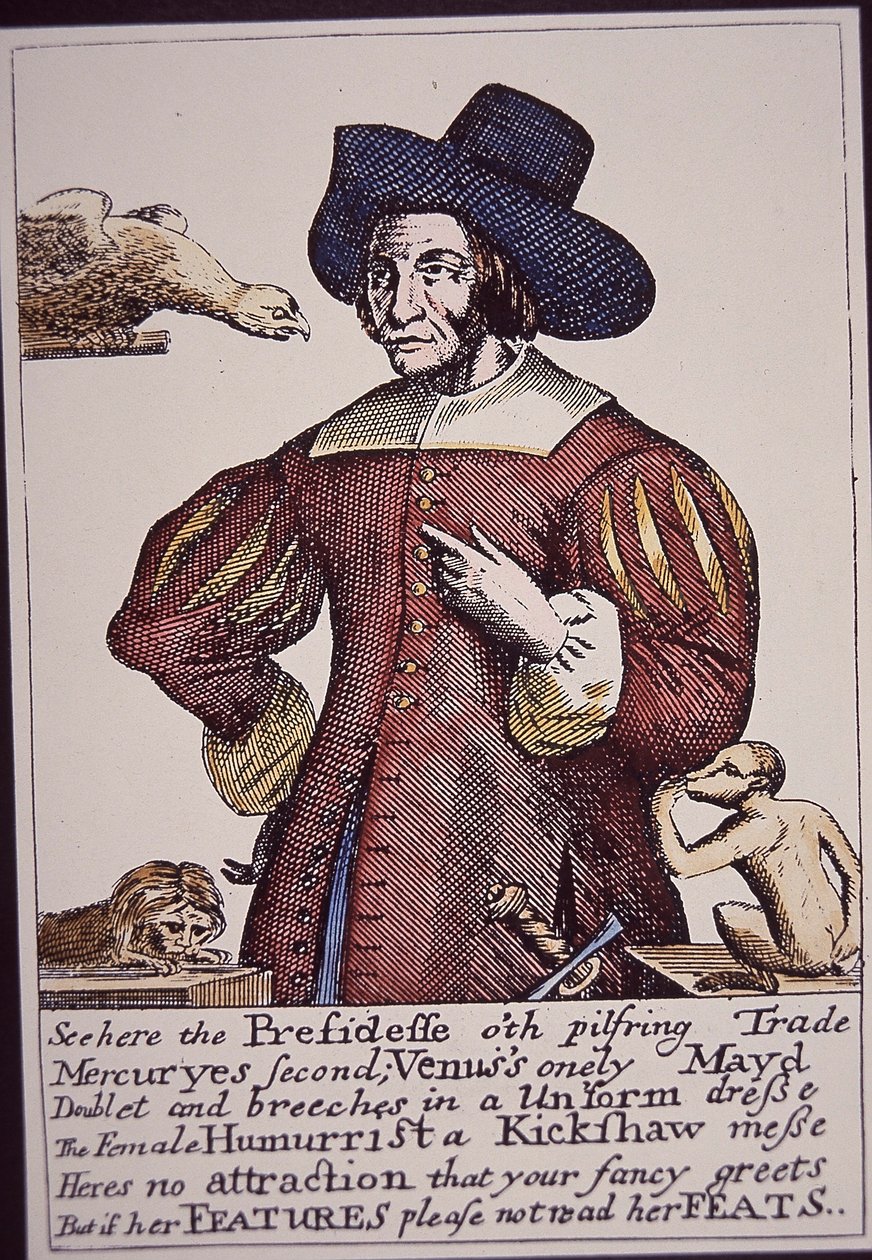 See here the Preſideſſe o'th pilfring Trade
Mercuryes ſecond; Venus's onely Mayd
Doublet and breeches in a Un'form dreſse
The Female Humurriſt a Kickſhaw meſse
Heres no attraction that your fancy greets
But if her FEATURES pleaſe not read her FEATS..